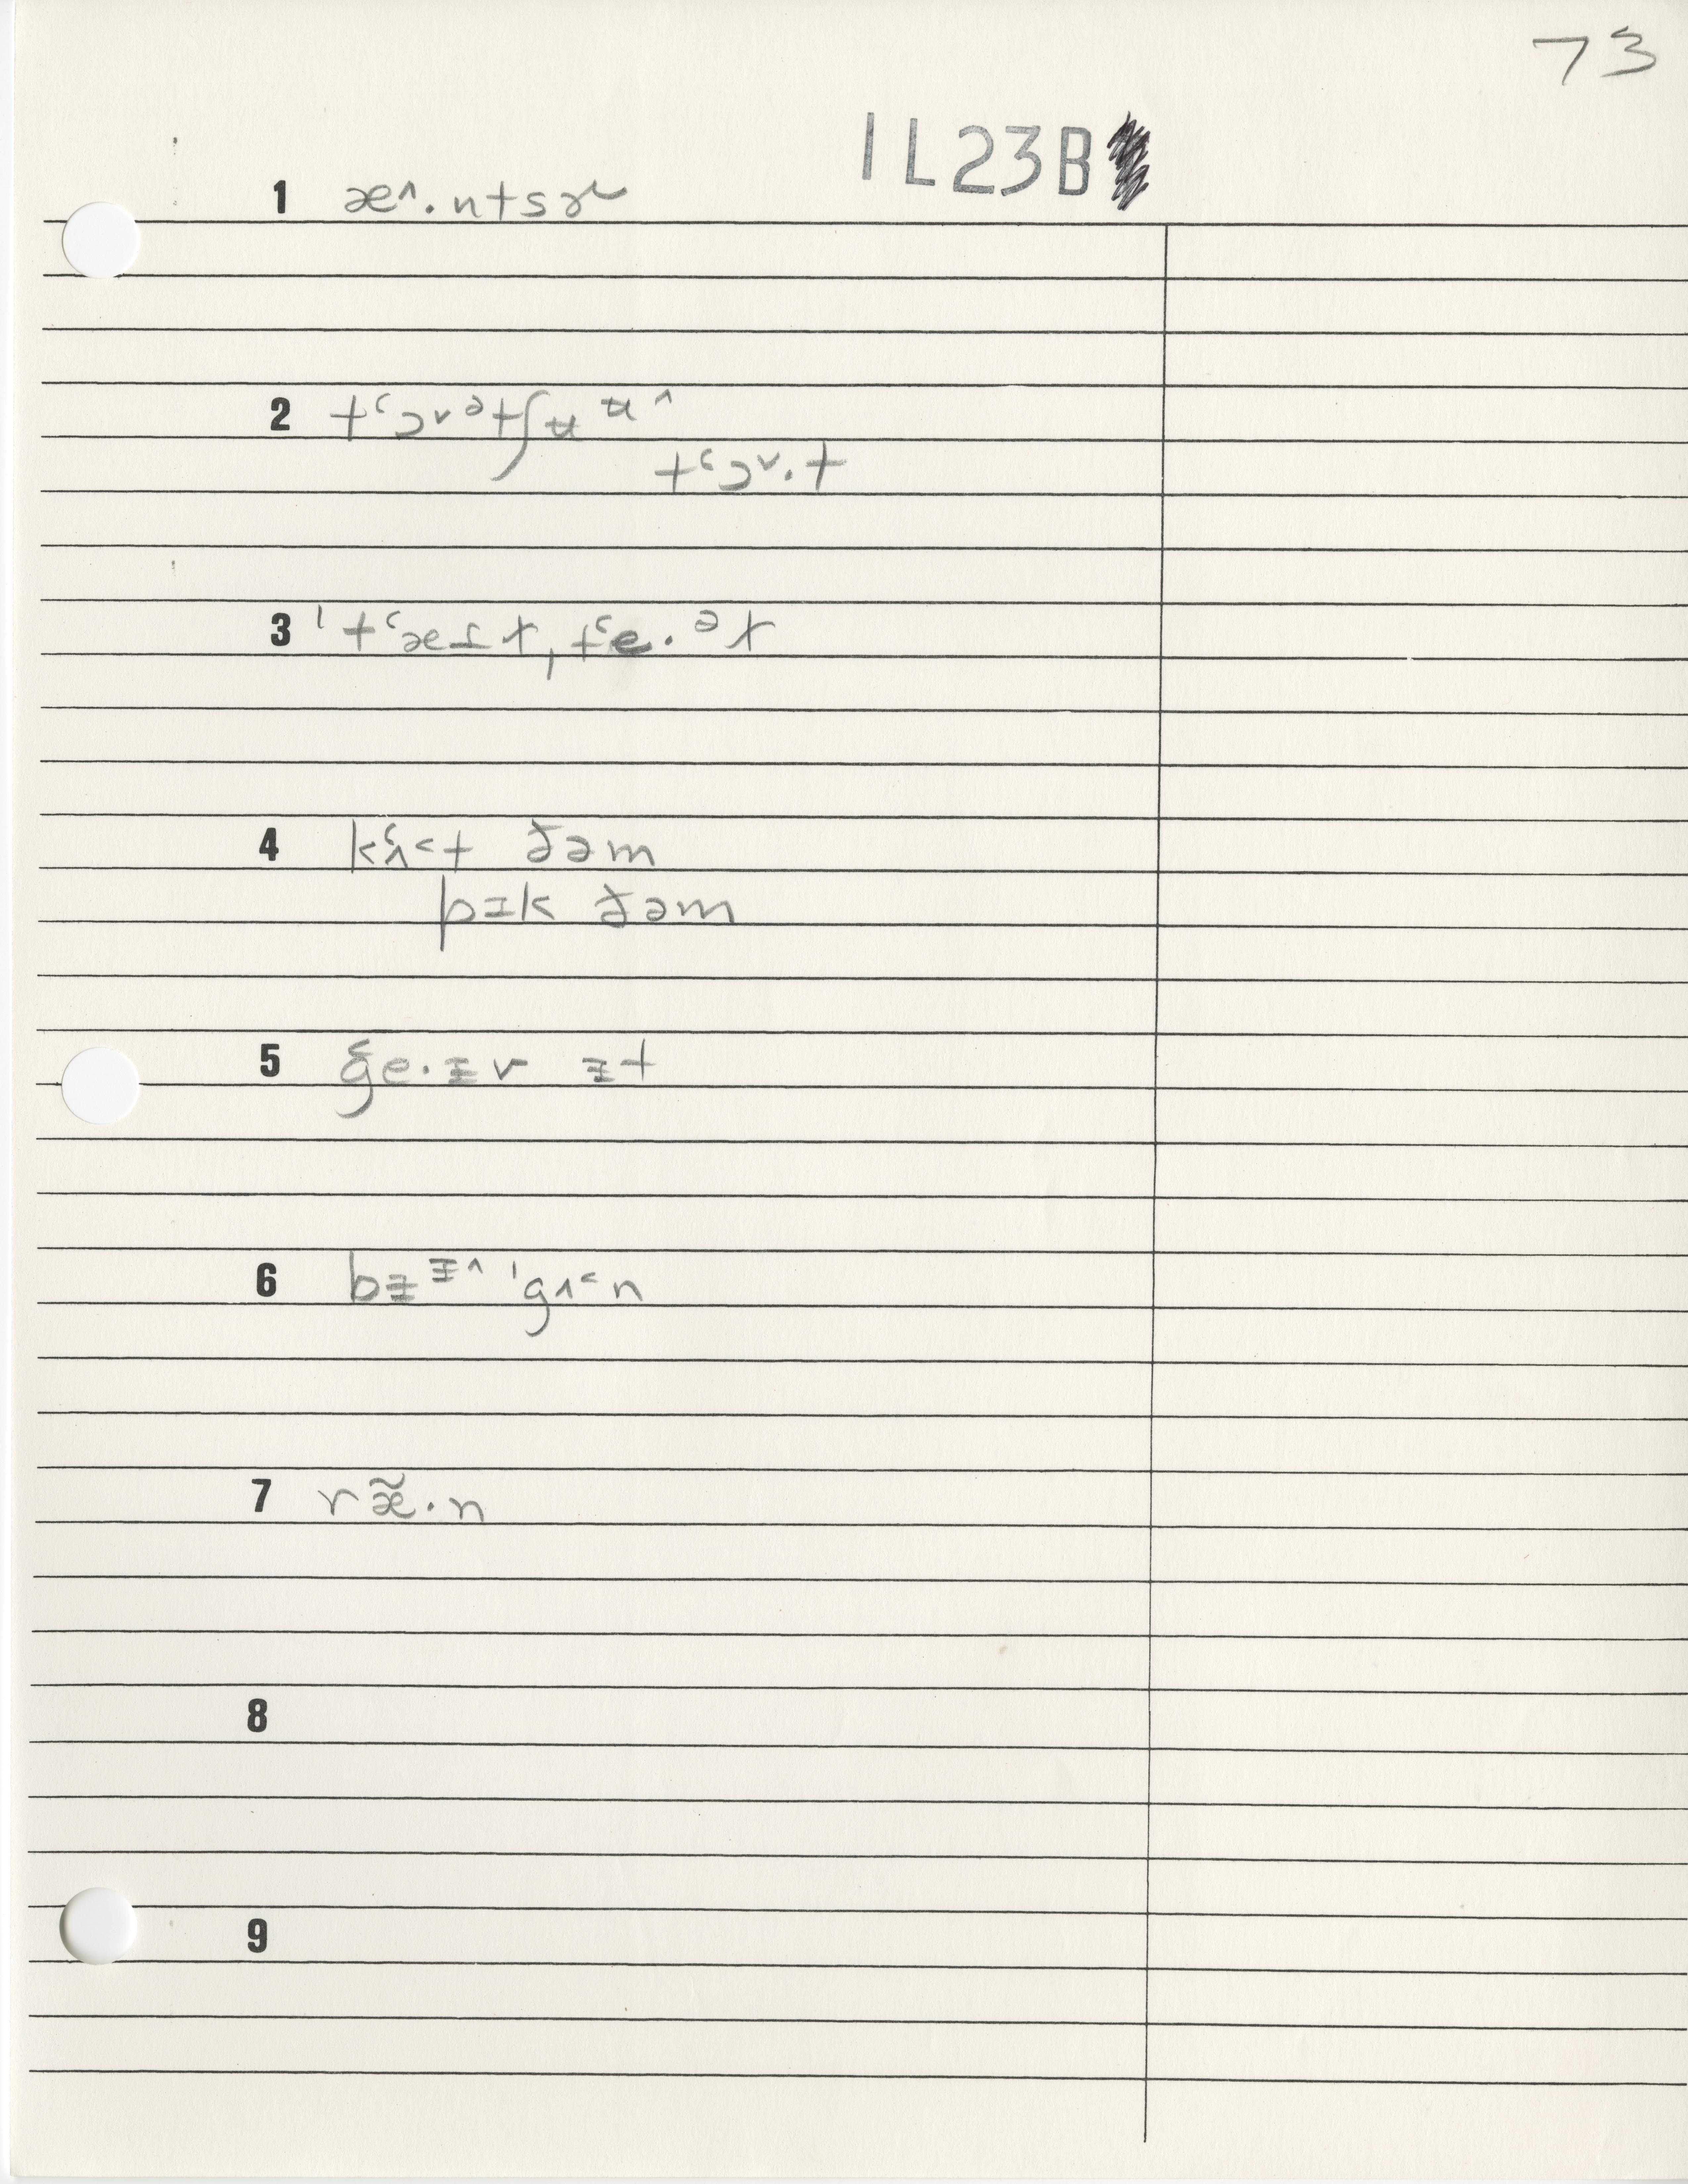 73
1L23B
1 æ^.ntsɚ
2 tʻɔ˅ᵊtʃʉ ʉ^
tʻɔ˅.t
3 ˈtʻæɪɫ, tʻe.ᵊɫ
4 kʻʌ˂t ðəm
pɪk ðəm
5 ge.ɪv ɪt
6 bɪ ɪ^ ˈgʌ˂n
7 ræ̃.n
8
9